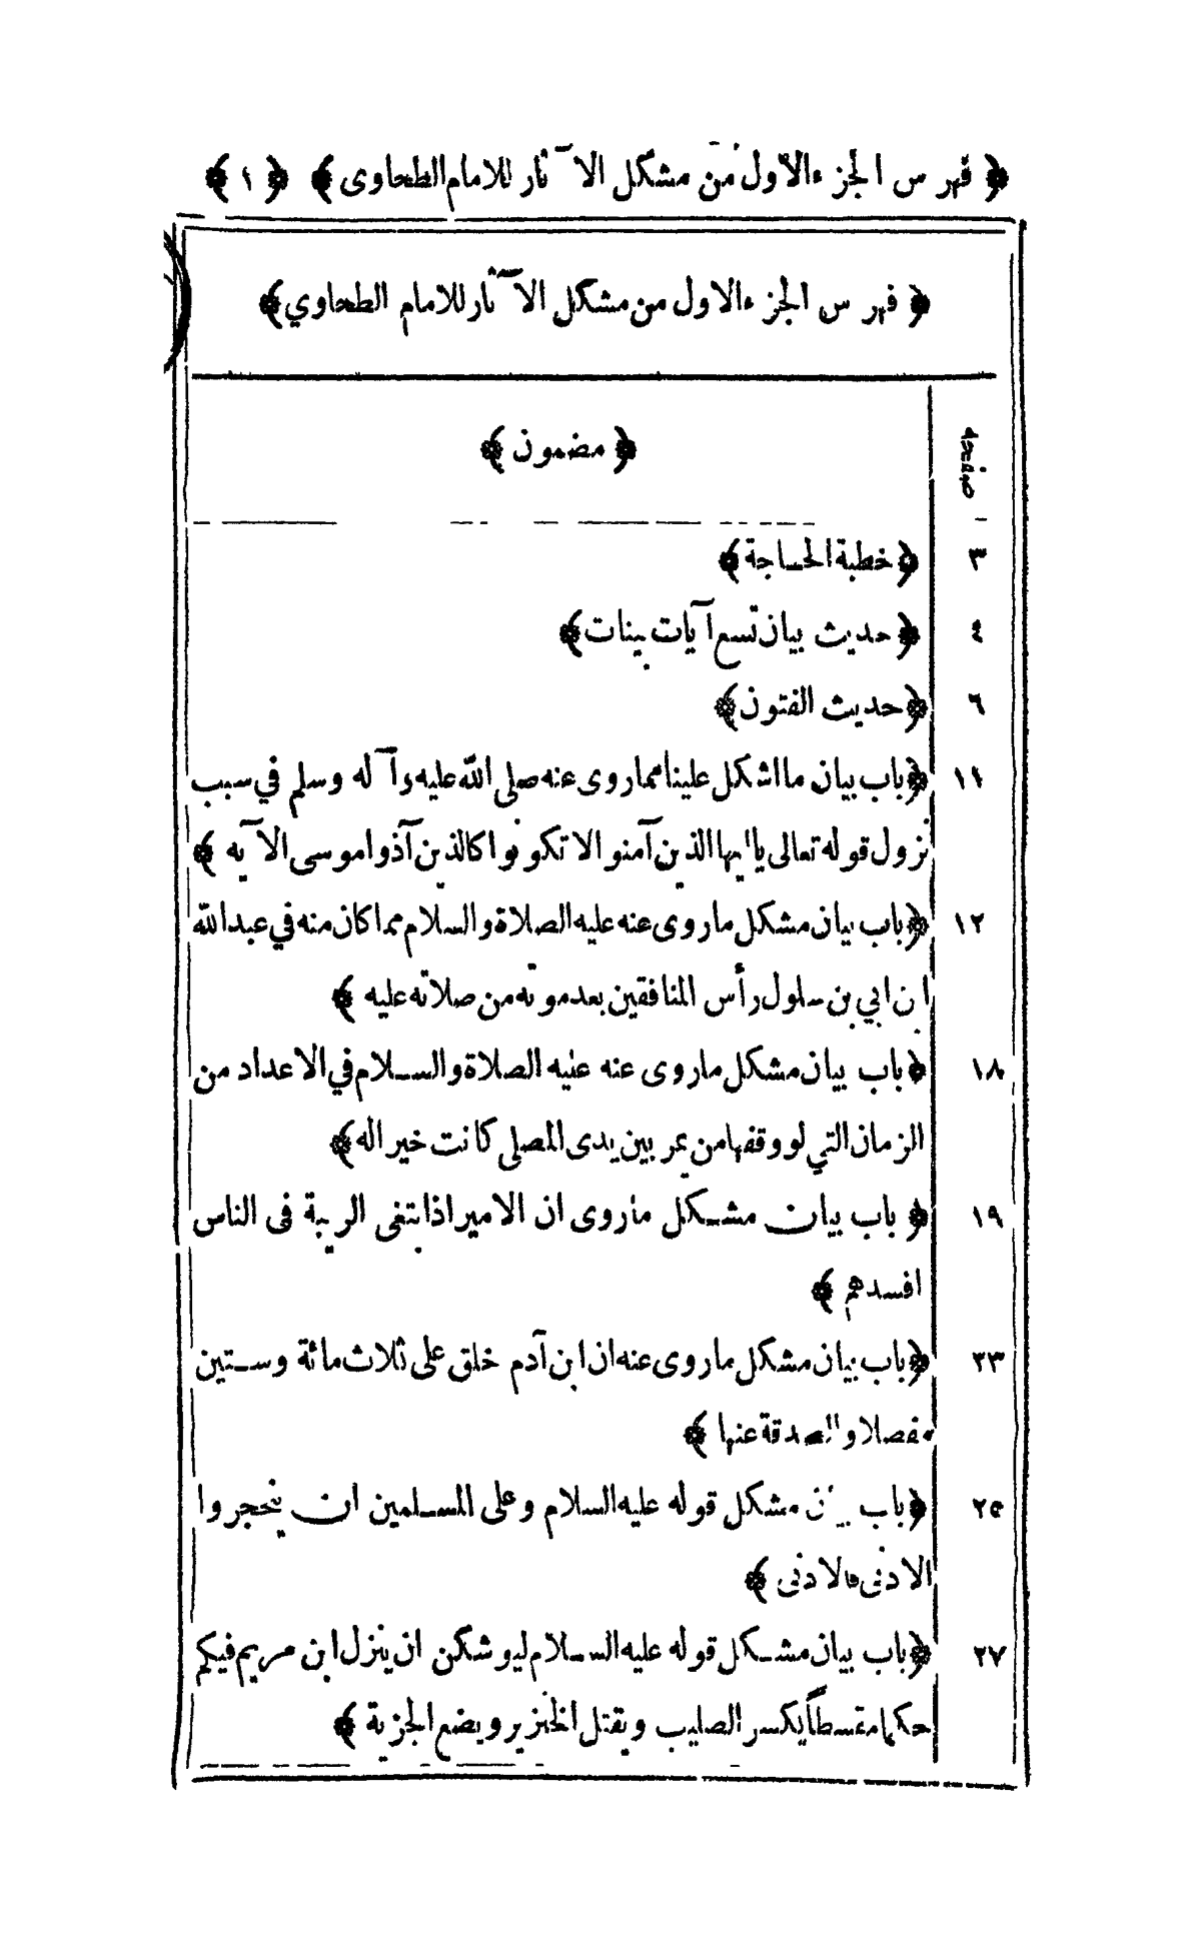 ﴿ فهرس الجزء الاول من مشكل الآثار للامام الطحاوى ﴾ ﴿ ١ ﴾
﴿ فهرس الجزء الاول من مشكل الآثار للامام الطحاوي ﴾
صفحه ﴿ مضمون ﴾
٣ ﴿ خطبة الحاجة ﴾
٤ ﴿ حديث بيان تسع آيات بينات ﴾
٦ ﴿ حديث الفتون ﴾
١١ ﴿ باب بيان ما اشكل علينا مما روى عنه صلى الله عليه وآله وسلم في سبب
نزول قوله تعالى ياايها الذين آمنوا لا تكونوا كالذين آذوا موسى الآيه ﴾
١٢ ﴿ باب بيان مشكل ما روى عنه عليه الصلاة والسلام مما كان منه في عبد الله
ابن ابي بن سلول رأس المنافقين بعد موته من صلاته عليه ﴾
١٨ ﴿ باب بيان مشكل ما روى عنه عليه الصلاة والسلام في الاعداد من
الزمان التي لو وقفها من يمر بين يدى المصلى كانت خيرا له ﴾
١٩ ﴿ باب بيان مشكل ما روى ان الامير اذا ابتغى الريبة فى الناس
افسدهم ﴾
٢٣ ﴿ باب بيان مشكل ما روى عنه ان ابن آدم خلق على ثلاث مائة وستين
مفصلا والصدقة عنها ﴾
٢٥ ﴿ باب بيان مشكل قوله عليه السلام وعلى المسلمين ان ينحجروا
الادنى فالادنى ﴾
٢٧ ﴿ باب بيان مشكل قوله عليه السلام ليوشكن ان ينزل ابن مريم فيكم
حكما مقسطاً يكسر الصليب ويقتل الخنزير ويضع الجزية ﴾